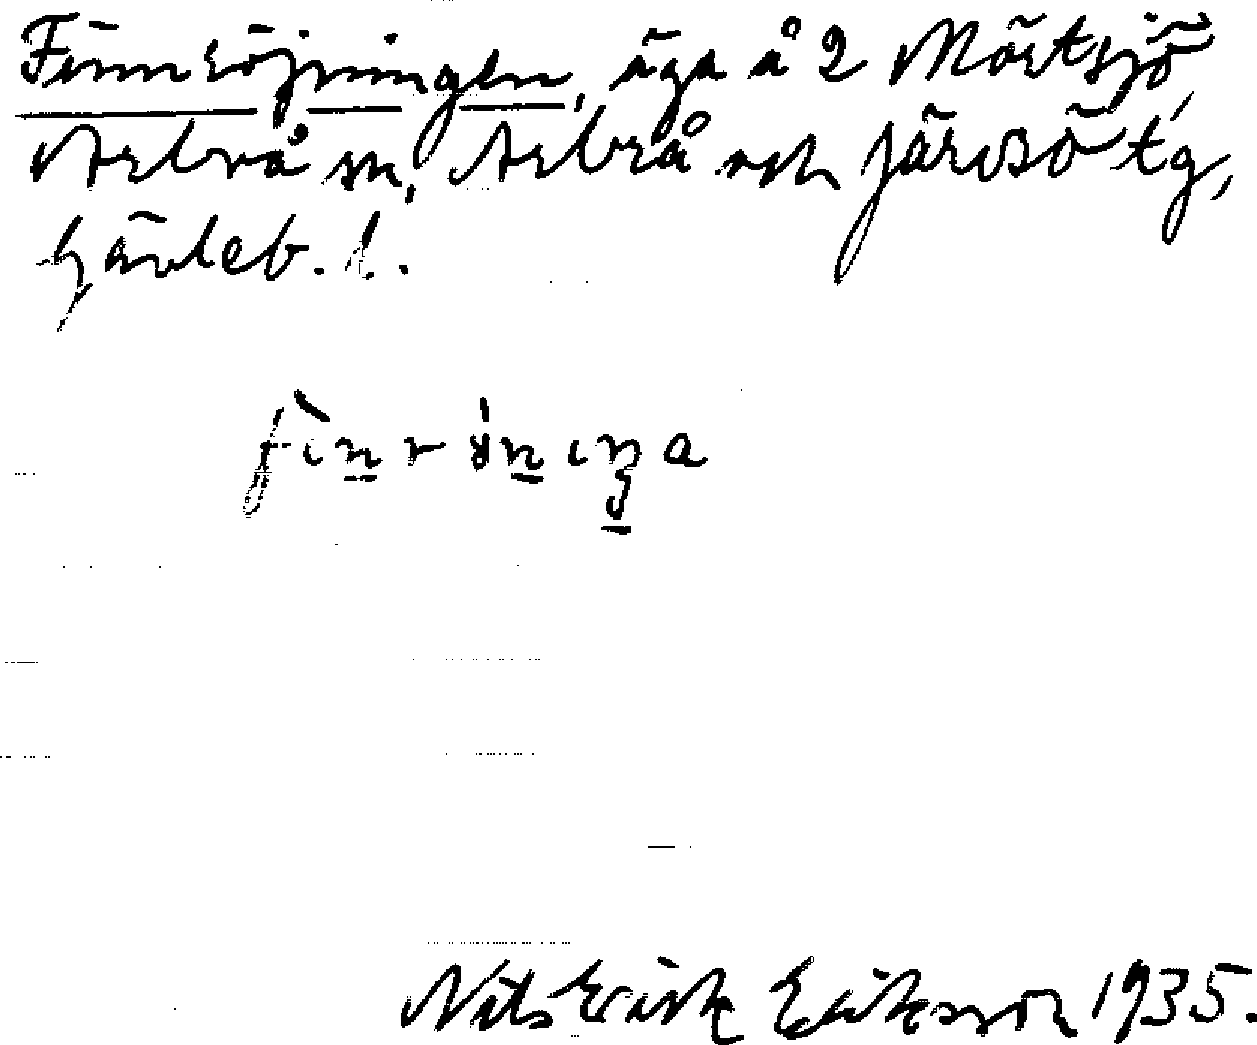 Finnröjningen, äga å 2 Mörtsjö,
Arbrå sn, Arbrå och Järvsö tg,
Gävleb. l.
Nils Erik Eriksson 1935.